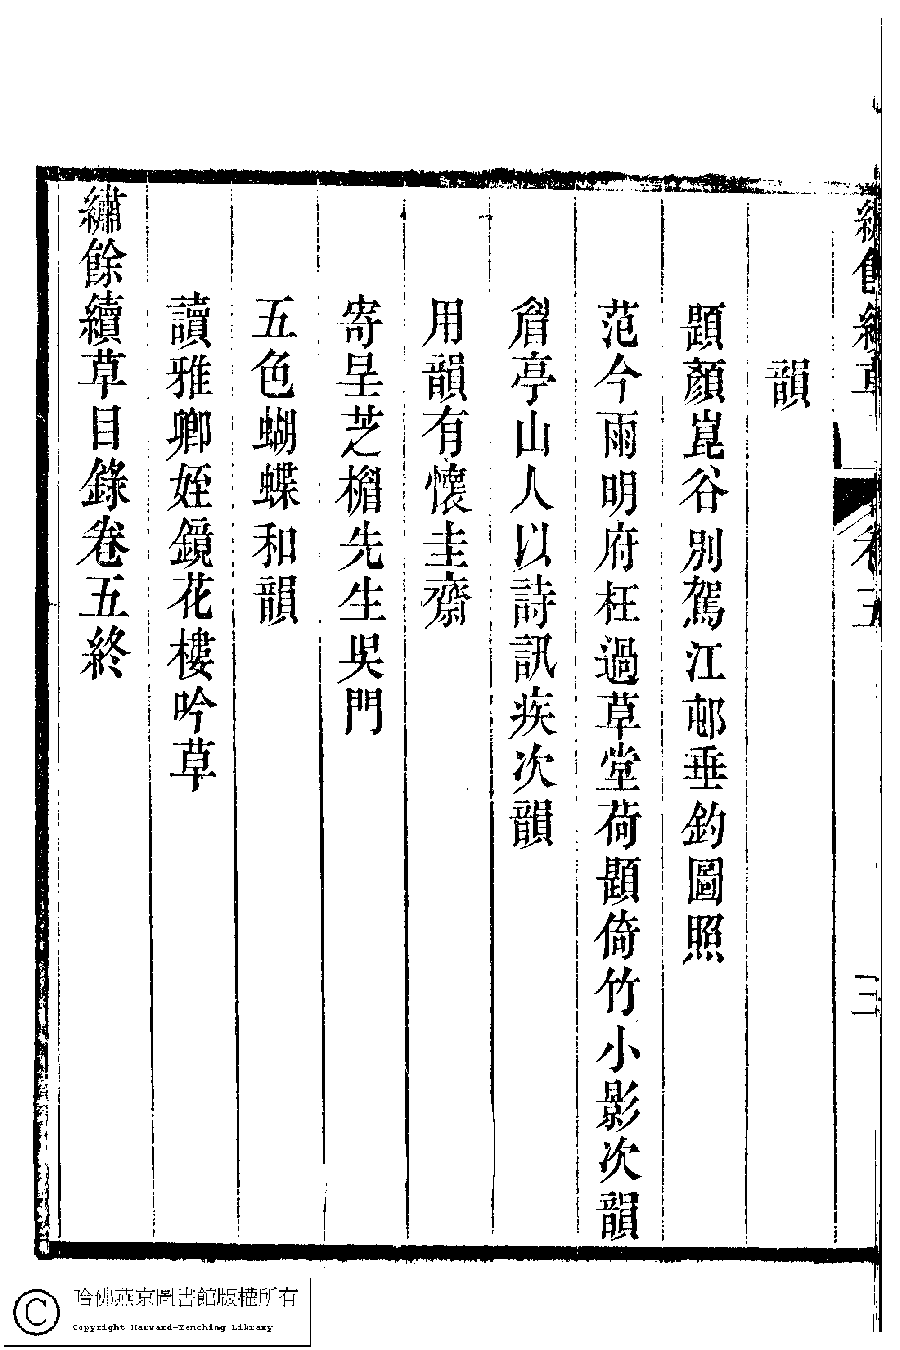 韻
題顏崑谷別駕江邨垂釣圖照
范今雨明府枉過草堂荷題倚竹小影次韻
亭山人以詩訊疾次韻
用韻有懷圭齋
寄呈芝楣先生吳門
五色蝴蝶和韻
讀雅卿姪鏡花樓吟草
繡餘續草目錄卷五終
三
哈佛燕京圖書館版權所有
Copyright Harvard-Yenching Library